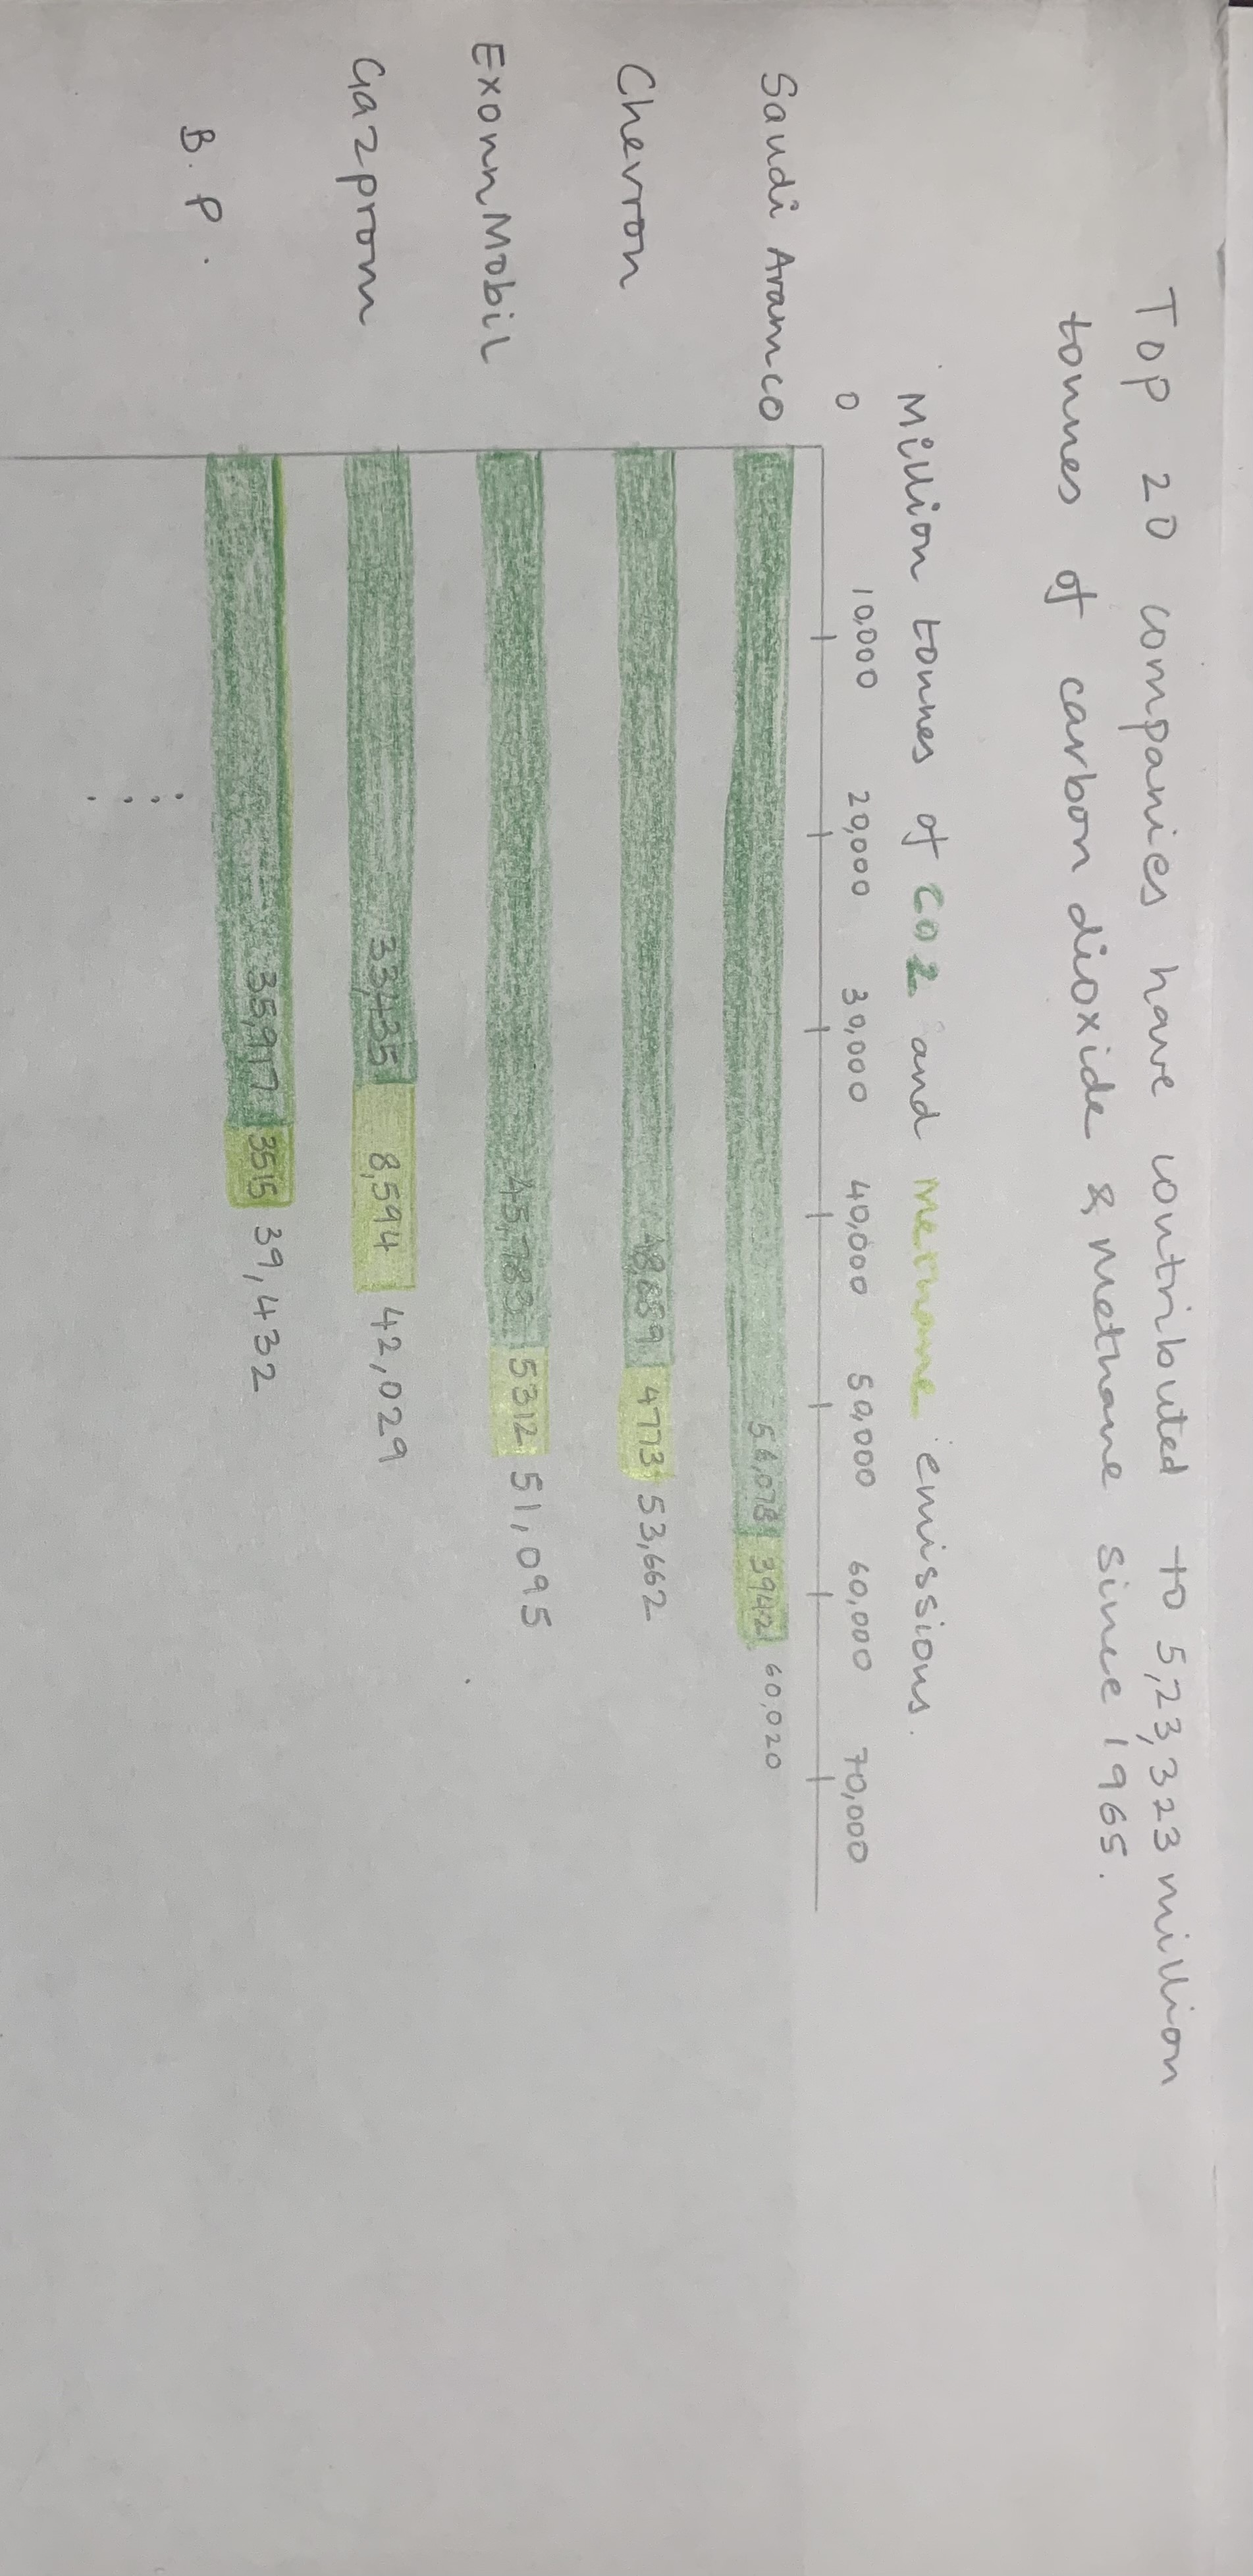 Top 20 companies have contributed to 5,23,323 million
tonnes of carbon dioxide & Methane since 1965.
Million tonnes of CO2 and Methane emissions.
0 10,000 20,000 30,000 40,000 50,000 60,000 70,000
Saudi Aramco 56,078 3942 60,020
Chevron 4773 53,662
ExonnMobil 45,783 5312 51,095
Gazprom 33,435 8,594 42,029
35,917 3515 39,432
B. P.